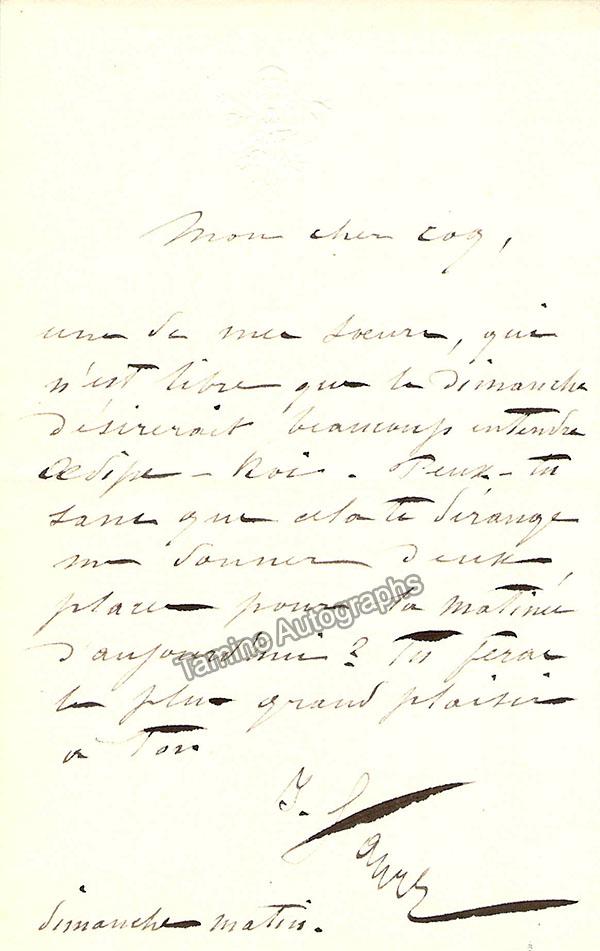 Mon cher Coq,
une de mes soeurs, qui
n'est libre que le Dimanche
désirerait beaucoup entendre
Oedipe-Roi. Peux-tu
sans que cela te dérange
me donner deux
places pour la matinée
d'aujourd'hui? Tu feras
le plus grand plaisir
à ton
J. Faure
dimanche matin.
Tamino Autographs